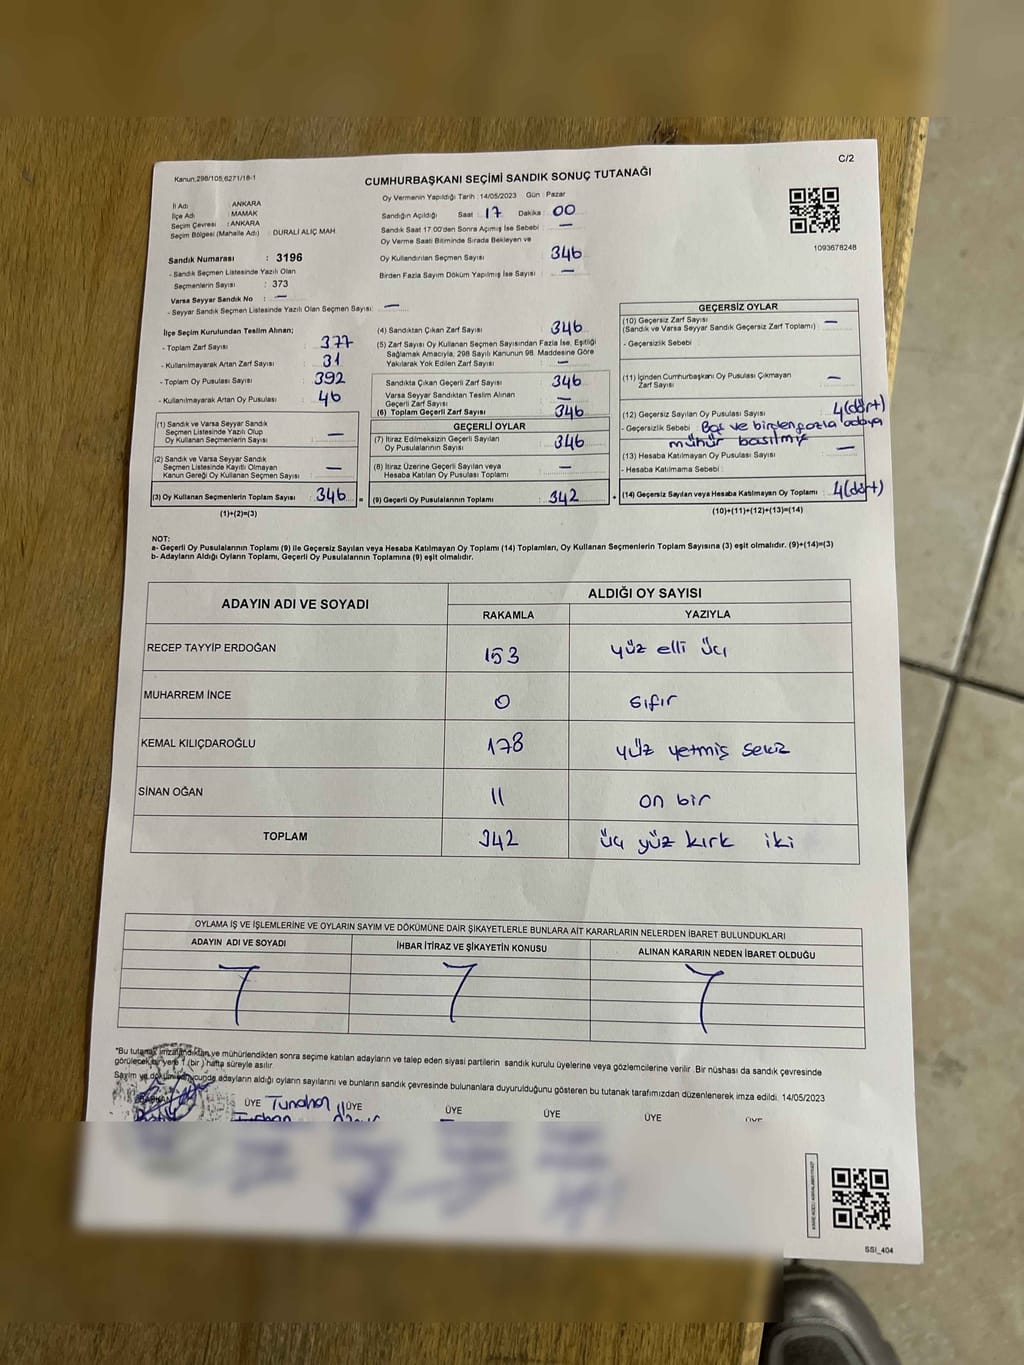 C/2
Kanun:298/105,6271/18-1
CUMHURBAŞKANI SEÇİMİ SANDIK SONUÇ TUTANAĞI
İl Adı : ANKARA
İlçe Adı : MAMAK
Seçim Çevresi : ANKARA
Seçim Bölgesi (Mahalle Adı) : DURALİ ALIÇ MAH
Oy Vermenin Yapıldığı Tarih : 14/05/2023 Gün : Pazar
Sandığın Açıldığı Saat : 17 Dakika : 00
Sandık Saat 17.00'den Sonra Açımış İse Sebebi : —
Oy Verme Saati Bitiminde Sırada Bekleyen ve
Oy Kullandırılan Seçmen Sayısı : 346
Birden Fazla Sayım Döküm Yapılmış İse Sayısı : —
1093678248
Sandık Numarası : 3196
- Sandık Seçmen Listesinde Yazılı Olan
Seçmenlerin Sayısı : 373
Varsa Seyyar Sandık No : —
- Seyyar Sandık Seçmen Listesinde Yazılı Olan Seçmen Sayısı: —
İlçe Seçim Kurulundan Teslim Alınan;
- Toplam Zarf Sayısı : 377
- Kullanılmayarak Artan Zarf Sayısı : 31
- Toplam Oy Pusulası Sayısı : 392
- Kullanılmayarak Artan Oy Pusulası : 46
(1) Sandık ve Varsa Seyyar Sandık
Seçmen Listesinde Yazılı Olup
Oy Kullanan Seçmenlerin Sayısı : —
(2) Sandık ve Varsa Seyyar Sandık
Seçmen Listesinde Kayıtlı Olmayan
Kanun Gereği Oy Kullanan Seçmen Sayısı : —
(3) Oy Kullanan Seçmenlerin Toplam Sayısı : 346 =
(1)+(2)=(3)
(4) Sandıktan Çıkan Zarf Sayısı : 346
(5) Zarf Sayısı Oy Kullanan Seçmen Sayısından Fazla İse, Eşitliği
Sağlamak Amacıyla, 298 Sayılı Kanunun 98. Maddesine Göre
Yakılarak Yok Edilen Zarf Sayısı : —
Sandıkta Çıkan Geçerli Zarf Sayısı : 346
Varsa Seyyar Sandıktan Teslim Alınan
Geçerli Zarf Sayısı : —
(6) Toplam Geçerli Zarf Sayısı : 346
GEÇERLİ OYLAR
(7) İtiraz Edilmeksizin Geçerli Sayılan
Oy Pusulalarının Toplamı : 346
(8) İtiraz Üzerine Geçerli Sayılan veya
Hesaba Katılan Oy Pusulası Toplamı : —
(9) Geçerli Oy Pusulalarının Toplamı : 342 +
GEÇERSİZ OYLAR
(10) Geçersiz Zarf Sayısı : —
(Sandık ve Varsa Seyyar Sandık Geçersiz Zarf Toplamı)
- Geçersizlik Sebebi :
(11) İçinden Cumhurbaşkanı Oy Pusulası Çıkmayan
Zarf Sayısı : —
(12) Geçersiz Sayılan Oy Pusulası Sayısı : 4(dört)
- Geçersizlik Sebebi : Boş ve birden fazla adaya
mühür basılmış
(13) Hesaba Katılmayan Oy Pusulası Sayısı : —
- Hesaba Katılmama Sebebi :
(14) Geçersiz Sayılan veya Hesaba Katılmayan Oy Toplamı : 4(dört)
(10)+(11)+(12)+(13)=(14)
NOT:
a- Geçerli Oy Pusulalarının Toplamı (9) ile Geçersiz Sayılan veya Hesaba Katılmayan Oy Toplamı (14) Toplamları, Oy Kullanan Seçmenlerin Toplam Sayısına (3) eşit olmalıdır. (9)+(14)=(3)
b- Adayların Aldığı Oyların Toplamı, Geçerli Oy Pusulalarının Toplamına (9) eşit olmalıdır.
ADAYIN ADI VE SOYADI ALDIĞI OY SAYISI
RAKAMLA YAZIYLA
RECEP TAYYİP ERDOĞAN 153 yüz elli üç
MUHARREM İNCE 0 sıfır
KEMAL KILIÇDAROĞLU 178 yüz yetmiş sekiz
SİNAN OĞAN 11 on bir
TOPLAM 342 üç yüz kırk iki
OYLAMA İŞ VE İŞLEMLERİNE VE OYLARIN SAYIM VE DÖKÜMÜNE DAİR ŞİKAYETLERLE BUNLARA AİT KARARLARIN NELERDEN İBARET BULUNDUKLARI
ADAYIN ADI VE SOYADI İHBAR İTİRAZ VE ŞİKAYETİN KONUSU ALINAN KARARIN NEDEN İBARET OLDUĞU
*Bu tutanak imzalandıktan ve mühürlendikten sonra seçime katılan adayların ve talep eden siyasi partilerin sandık kurulu üyelerine veya gözlemcilerine verilir. Bir nüshası da sandık çevresinde
görülecek bir yere 1 (bir) hafta süreyle asılır.
Sayım ve dökümü sonucunda adayların aldığı oyların sayılarını ve bunların sandık çevresinde bulunanlara duyurulduğunu gösteren bu tutanak tarafımızdan düzenlenerek imza edildi. 14/05/2023
BAŞKAN ÜYE Tunahan ÜYE ÜYE ÜYE ÜYE ÜYE
SSI_404